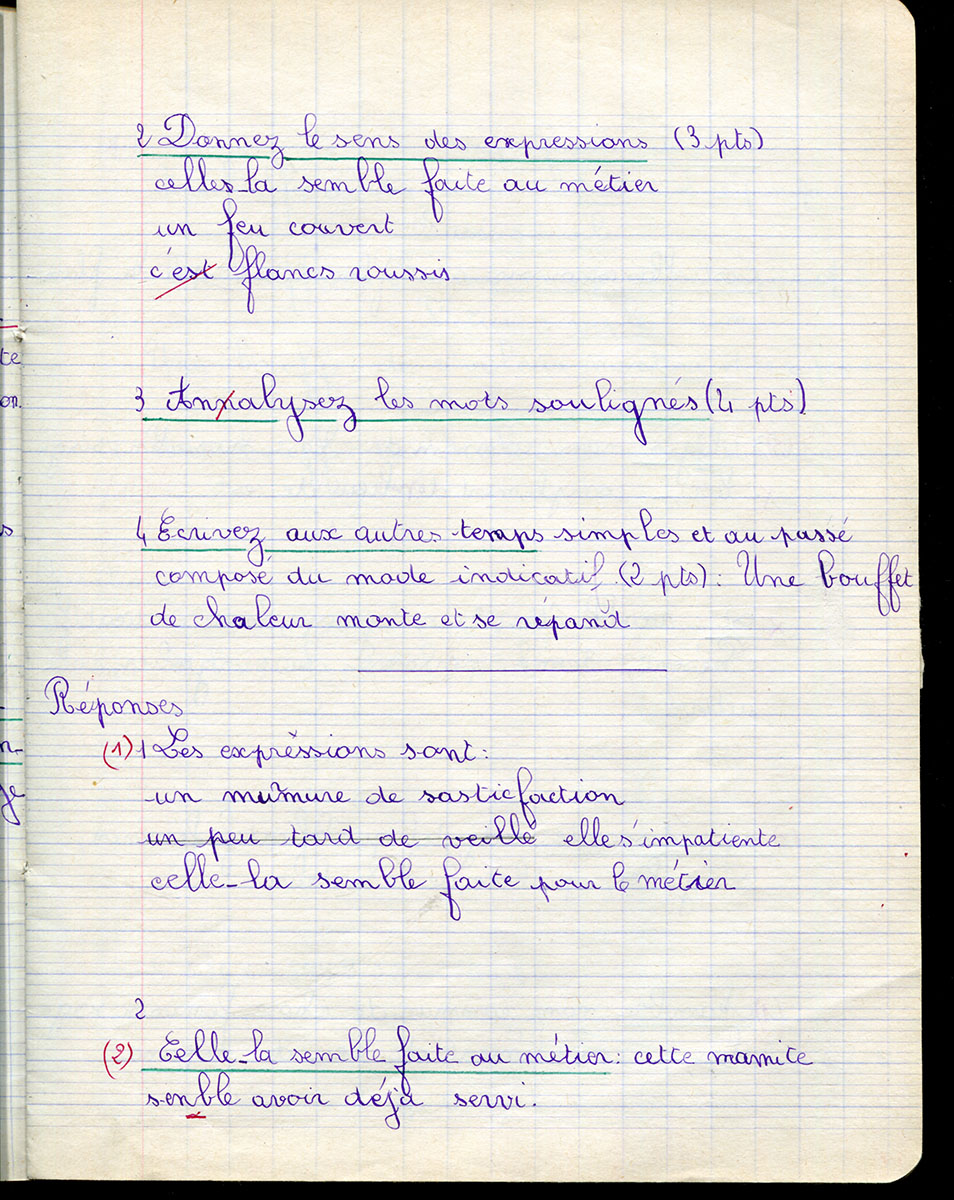 2 Donnez le sens des expressions (3 pts)
celles-la semble faite au métier
un feu couvert
c'est flancs roussis
3 Annalysez les mots soulignés (4 pts)
4 Ecrivez aux autres temps simples et au passé
composé du mode indicatif (2 pts): Une bouffet
de chaleur monte et se répand
Réponses
(1) 1 Les expressions sont:
un mumure de sasticfaction
un peu tard de veille elle s'impatiente
celle-la semble faite pour le métier
2
(2) Celle-la semble faite au métier: cette mamite
senble avoir déjà servi.
te
on
s
n-
ge